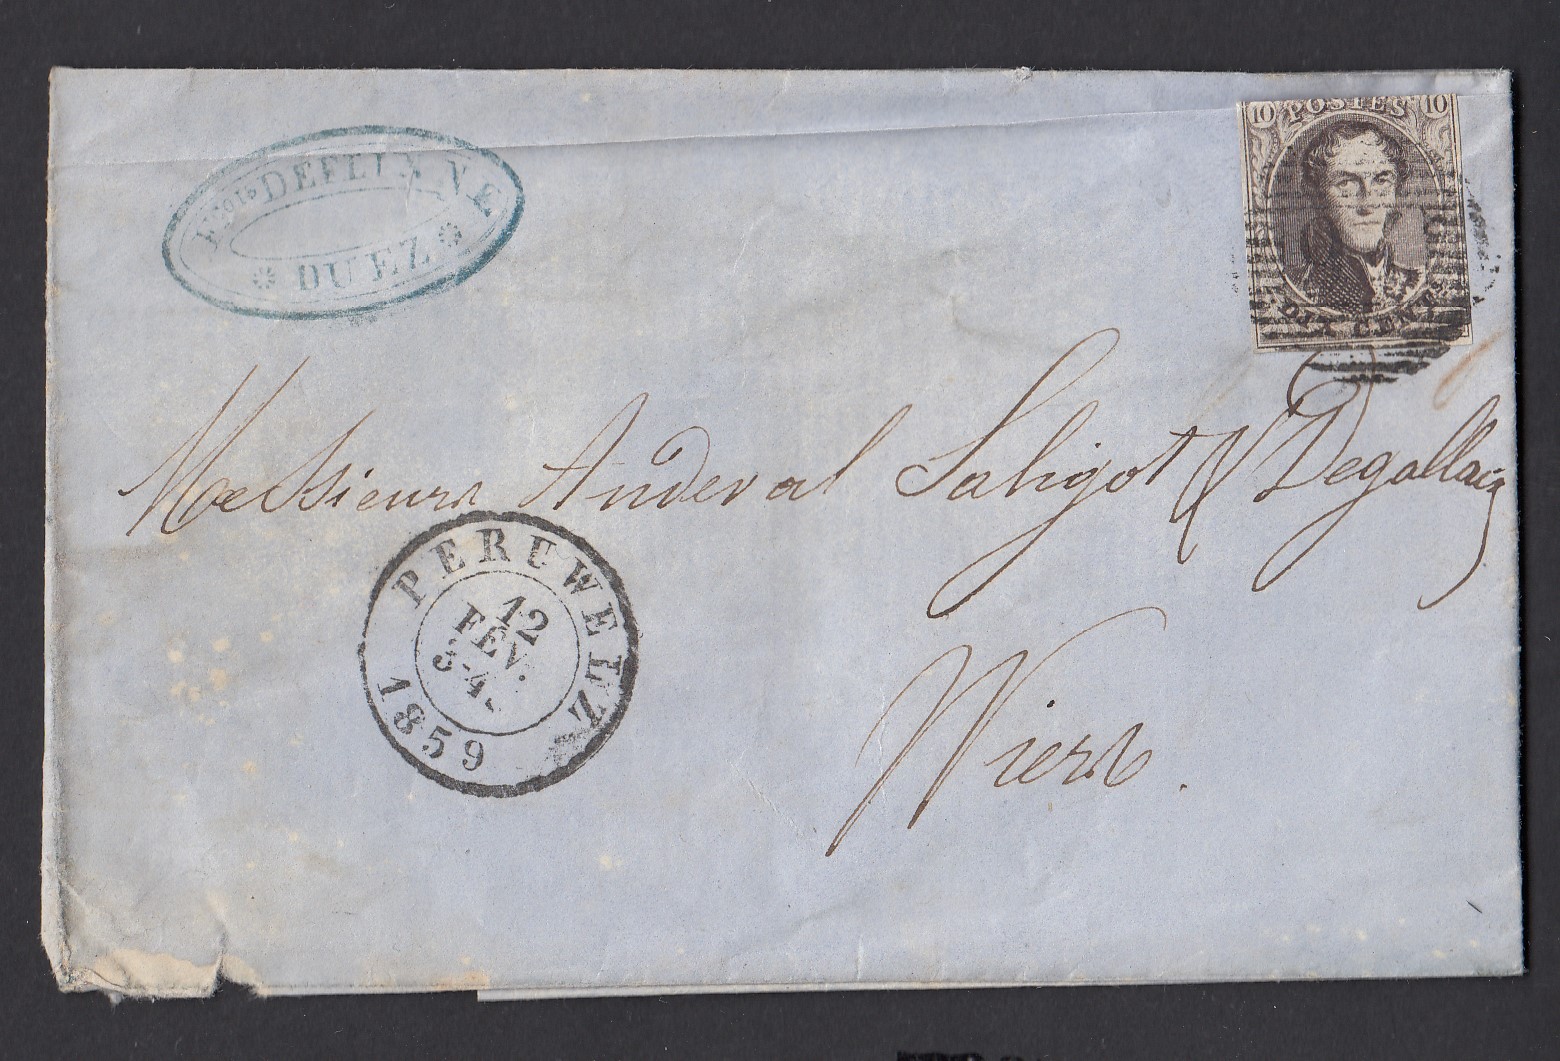 DEFLINNE
DUEZ
10 POSTES 10
DIX CENTIMES
Messieurs Anderval Saligot & Degallaix
PERUWELZ
12
FEV.
3-4.
1859
Wiers.